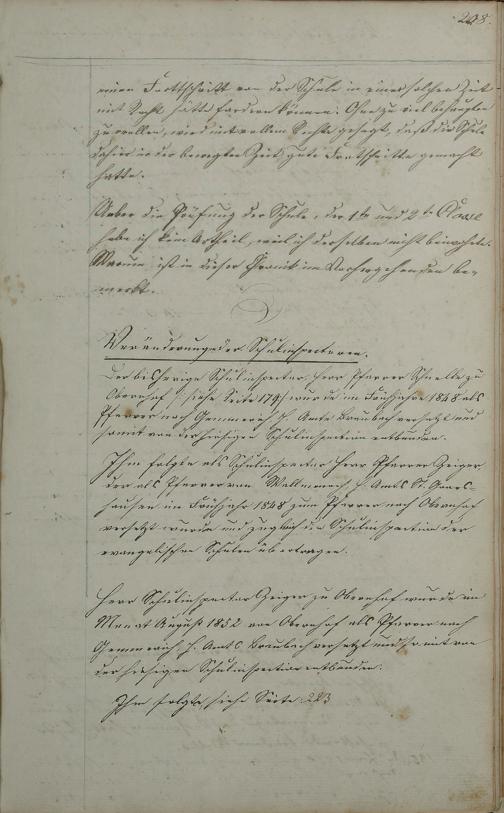 208.
einen Fortschritt von der Schule in einer solchen Zeit
mit Recht hätte fordern können. Ohne zu viel behaupten
zu wollen, wird mit vollem Rechte gesagt, daß die Schule
dahier in der bewegten Zeit gute Fortschritte gemacht
hatte.
Ueber die Prüfung der Schule, der 1ten und 2ten Classe
habe ich kein Urtheil, weil ich derselben nicht beiwohnte.
Warum ist in dieser Chronik im Vorhergehenden be-
merkt.
Veränderung der Schulinspectoren.
Der bisherige Schulinspector Herr Pfarrer Schnelle zu
Obernhof, siehe Seite 179, wurde im Frühjahre 1848 als
Pfarrer nach Gemmerich, H. Amts Braubach versetzt und
somit von der hiesigen Schulinspection entbunden.
Ihm folgte als Schulinspector Herr Pfarrer Geiger,
der als Pfarrer von Wallmenach, H. Amts St. Goars-
hausen im Frühjahr 1848 zum Pfarrer nach Obernhof
versetzt wurde und zugleich die Schulinspection der
evangelischen Schulen übertragen.
Herr Schulinspector Geiger zu Obernhof wurde im
Monat August 1852 von Obernhof als Pfarrer nach
Gemmerich, H. Amts Braubach versetzt und somit von
der hiesigen Schulinspection entbunden.
Ihm folgte, siehe Seite 223